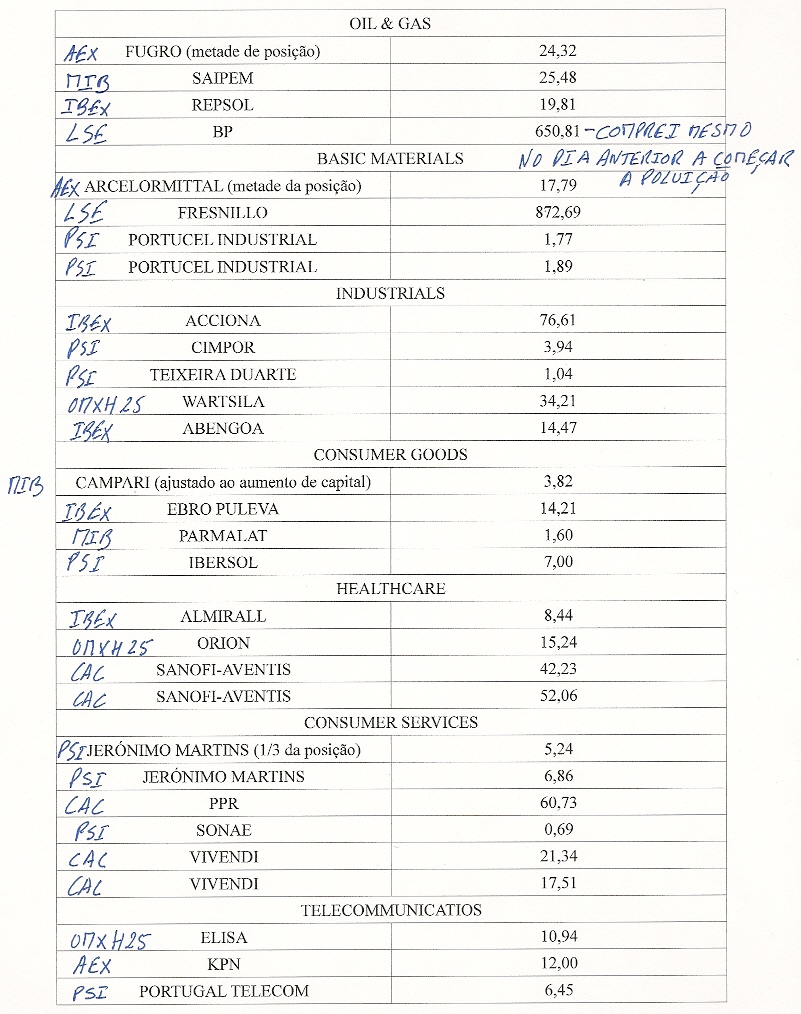 OIL & GAS
AEX FUGRO (metade de posição) 24,32
MIB SAIPEM 25,48
IBEX REPSOL 19,81
LSE BP 650,81 - COMPREI MESMO
BASIC MATERIALS NO DIA ANTERIOR A COMEÇAR
A POLUIÇÃO
AEX ARCELORMITTAL (metade da posição) 17,79
LSE FRESNILLO 872,69
PSI PORTUCEL INDUSTRIAL 1,77
PSI PORTUCEL INDUSTRIAL 1,89
INDUSTRIALS
IBEX ACCIONA 76,61
PSI CIMPOR 3,94
PSI TEIXEIRA DUARTE 1,04
OMXH25 WARTSILA 34,21
IBEX ABENGOA 14,47
CONSUMER GOODS
MIB CAMPARI (ajustado ao aumento de capital) 3,82
IBEX EBRO PULEVA 14,21
MIB PARMALAT 1,60
PSI IBERSOL 7,00
HEALTHCARE
IBEX ALMIRALL 8,44
OMXH25 ORION 15,24
CAC SANOFI-AVENTIS 42,23
CAC SANOFI-AVENTIS 52,06
CONSUMER SERVICES
PSI JERÓNIMO MARTINS (1/3 da posição) 5,24
PSI JERÓNIMO MARTINS 6,86
CAC PPR 60,73
PSI SONAE 0,69
CAC VIVENDI 21,34
CAC VIVENDI 17,51
TELECOMMUNICATIOS
OMXH25 ELISA 10,94
AEX KPN 12,00
PSI PORTUGAL TELECOM 6,45